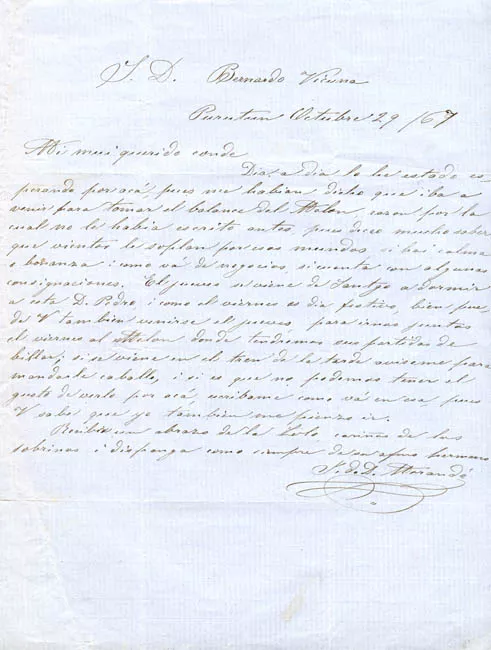 S. D. Bernardo Vicuña
Purutun Octubre 29 /67
Mi mui querido conde
Dia a dia lo he estado es-
perando por acá pues me habian dicho que iba a
venir para tomar el balance del Melon, razon por la
cual no le habia escrito antes, pues deseo mucho saber
que vientos le soplan por esos mundos, si hai calma
o bonanza i como vá de negocios, si cuenta con algunas
consignaciones. El jueves se viene de Santgo a dormir
a esta D. Pedro, i como el viernes es dia festivo, bien pue-
de V tambien venirse el jueves, para irnos juntos
el viernes al Melon donde tendremos unas partidas de
billar; si se viene en el tren de la tarde aviseme para
mandarle caballo, i si es que no podemos tener el
gusto de verlo por acá, escribame como vá en esa pues
V sabe que yo tambien me pienso ir.
Reciba un abrazo de la Lolo cariños de las
sobrinas i disponga como siempre de su afmo hermano
J. D. Morandé